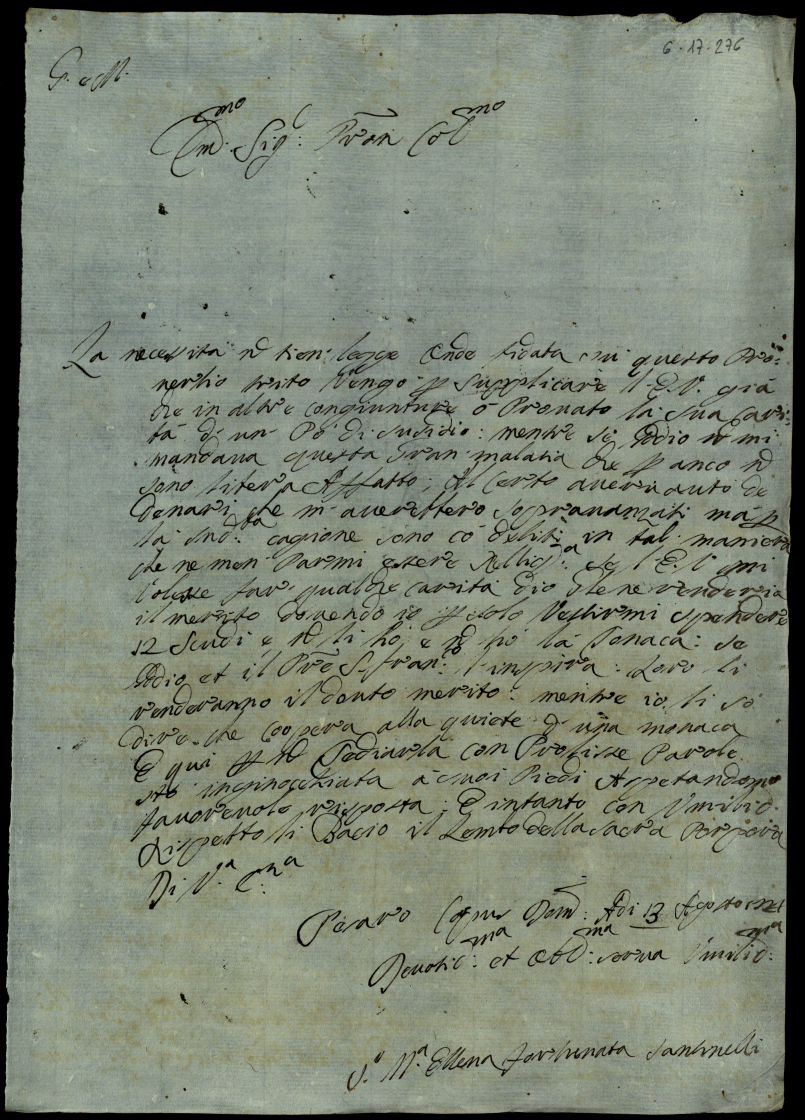 6-17-276
G. e M.
Em.mo Sig.r Pron Col.mo
La necessita nō tien legge Onde fidata sui questo Pro=
uerbio trito Vengo p Supplicare l' E. V. già
che in altre congiunture ò Prouato la sua Cari=
tà d' un Pò di susidio: mentre se Iddio nō mi
mandaua questa gran malatia che p anco nō
sono libera Affatto; Al Certo auerei auto de
denari che m' auerebbero soprauanzati mà p
la sud.ta cagione sono cō debiti in tal maniera
che ne men Parmi essere Relligi.a se l' E. V. mi
Volesse far qualche carita Dio gle ne renderia
il merito douendo io p solo Vestirmi spendere
12 Scudi e nō li hò, e nō hò la Tonaca: se
Iddio et il Prē S. Fran.co l' inspira: Loro li
renderanno il douto merito: mentre io li sò
dire che coopera alla quiete d' una monaca
E qui p nō Tediarla con Prolisse Parole
stò inginocchiata a suoi Piedi Aspetandone
fauoreuole risposta; E intanto con Vmilis.
Rispetto li Bacio il Lembo della Sacra Porpora
Di V.a E.za
Pesaro Corpus Dom: Adi 13 Agosto
Deuotis.ma et Obb.ma serua Vmilis.ma
S.r M.a Ellena Fortunata Santinelli